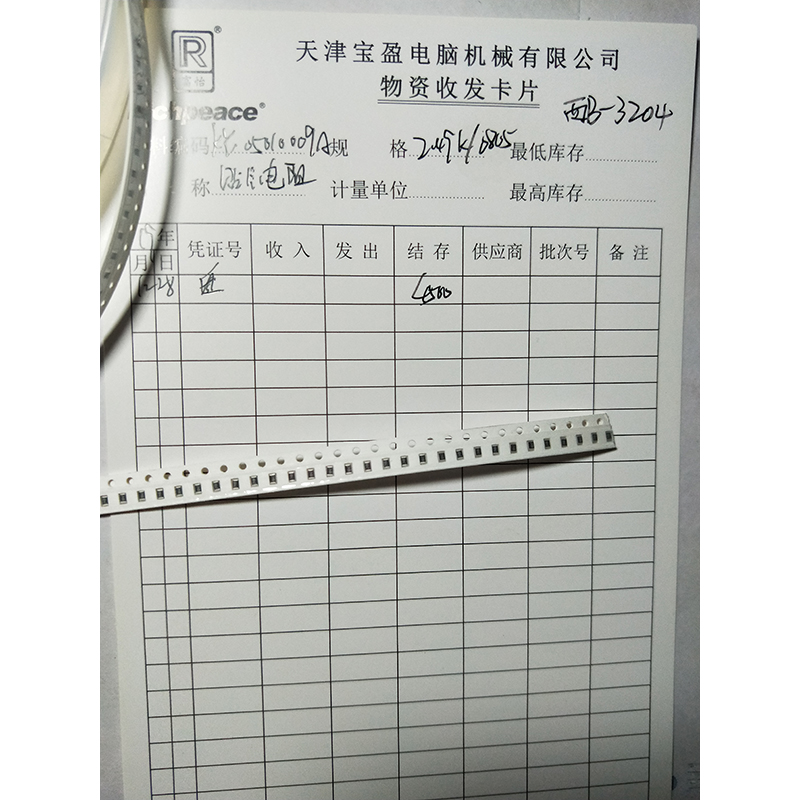 R®
富怡
chpeace®
天津宝盈电脑机械有限公司
物资收发卡片
西B-3204
码 05010009A 规 格 2.49K/0805 最低库存
称 贴片电阻 计量单位 最高库存
15年 凭证号 收入 发出 结存 供应商 批次号 备注
月 日
12 28 4500